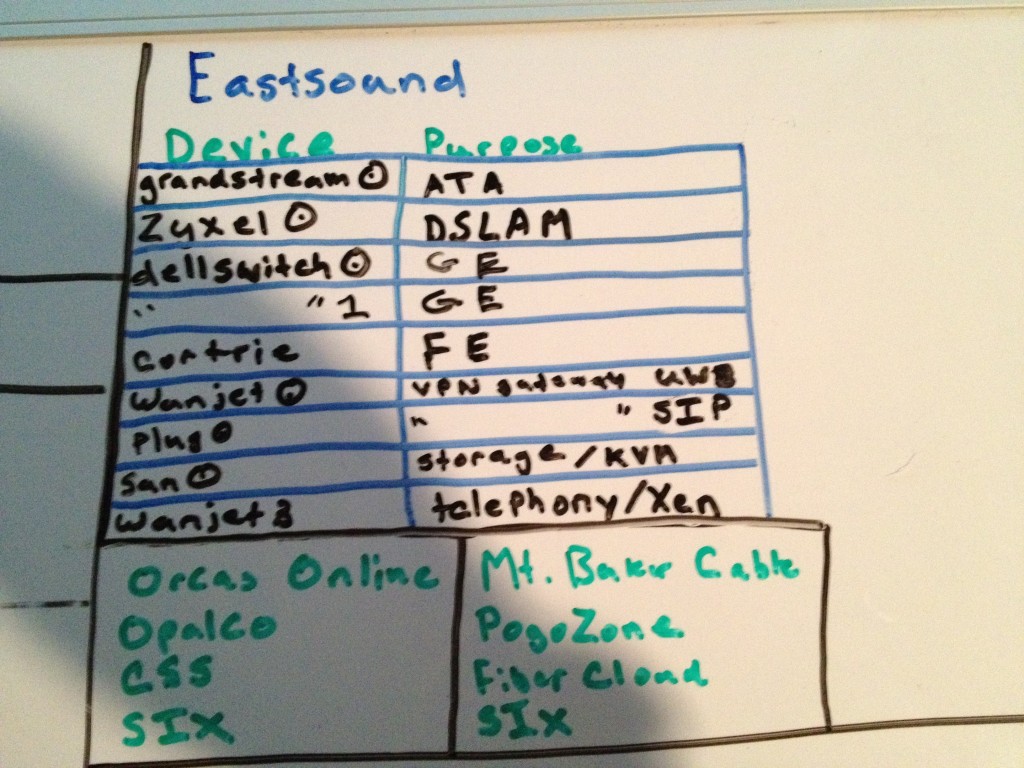 Eastsound
Device Purpose
grandstream 0 ATA
Zyxel 0 DSLAM
dellswitch 0 GE
" " 1 GE
cortrie FE
wanjet 0 VPN gateway UWB
plug 0 " " SIP
san 0 storage/KVM
wanjet 3 telephony/Xen
Orcas Online Mt. Baker Cable
Opalco PogoZone
CSS FiberCloud
SIX SIX